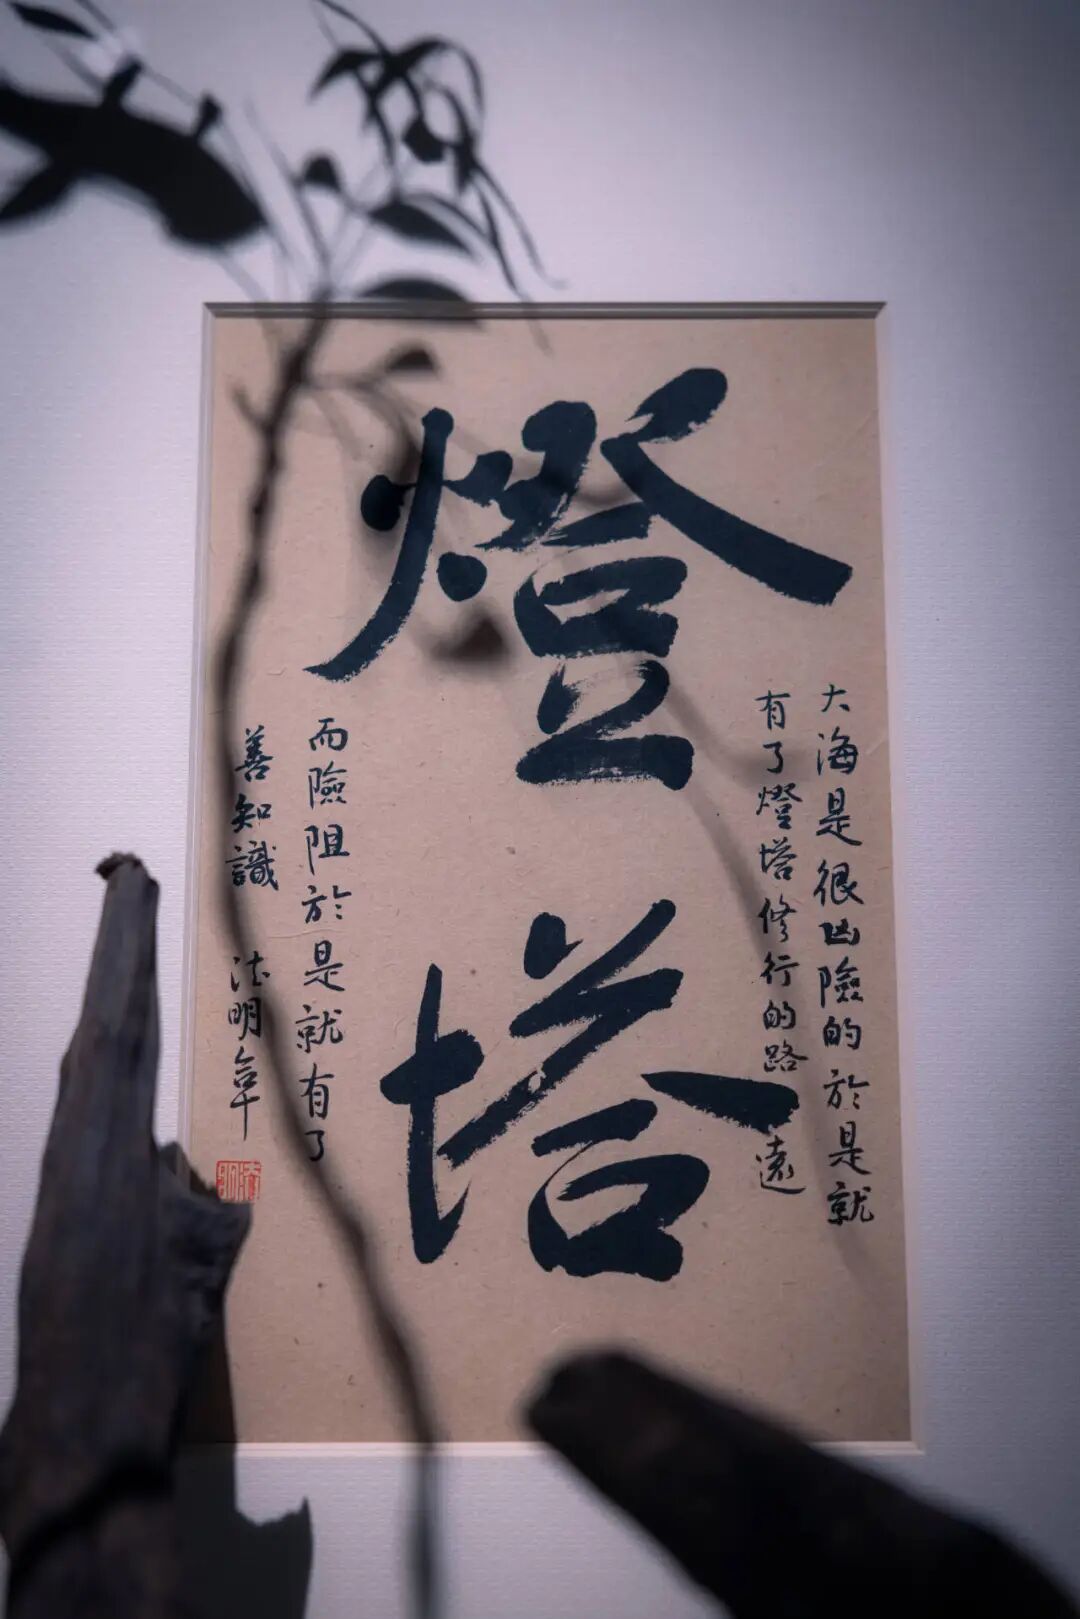 燈塔
大海是很凶險的於是就
有了燈塔修行的路 遠
而險阻於是就有了
善知識 法明